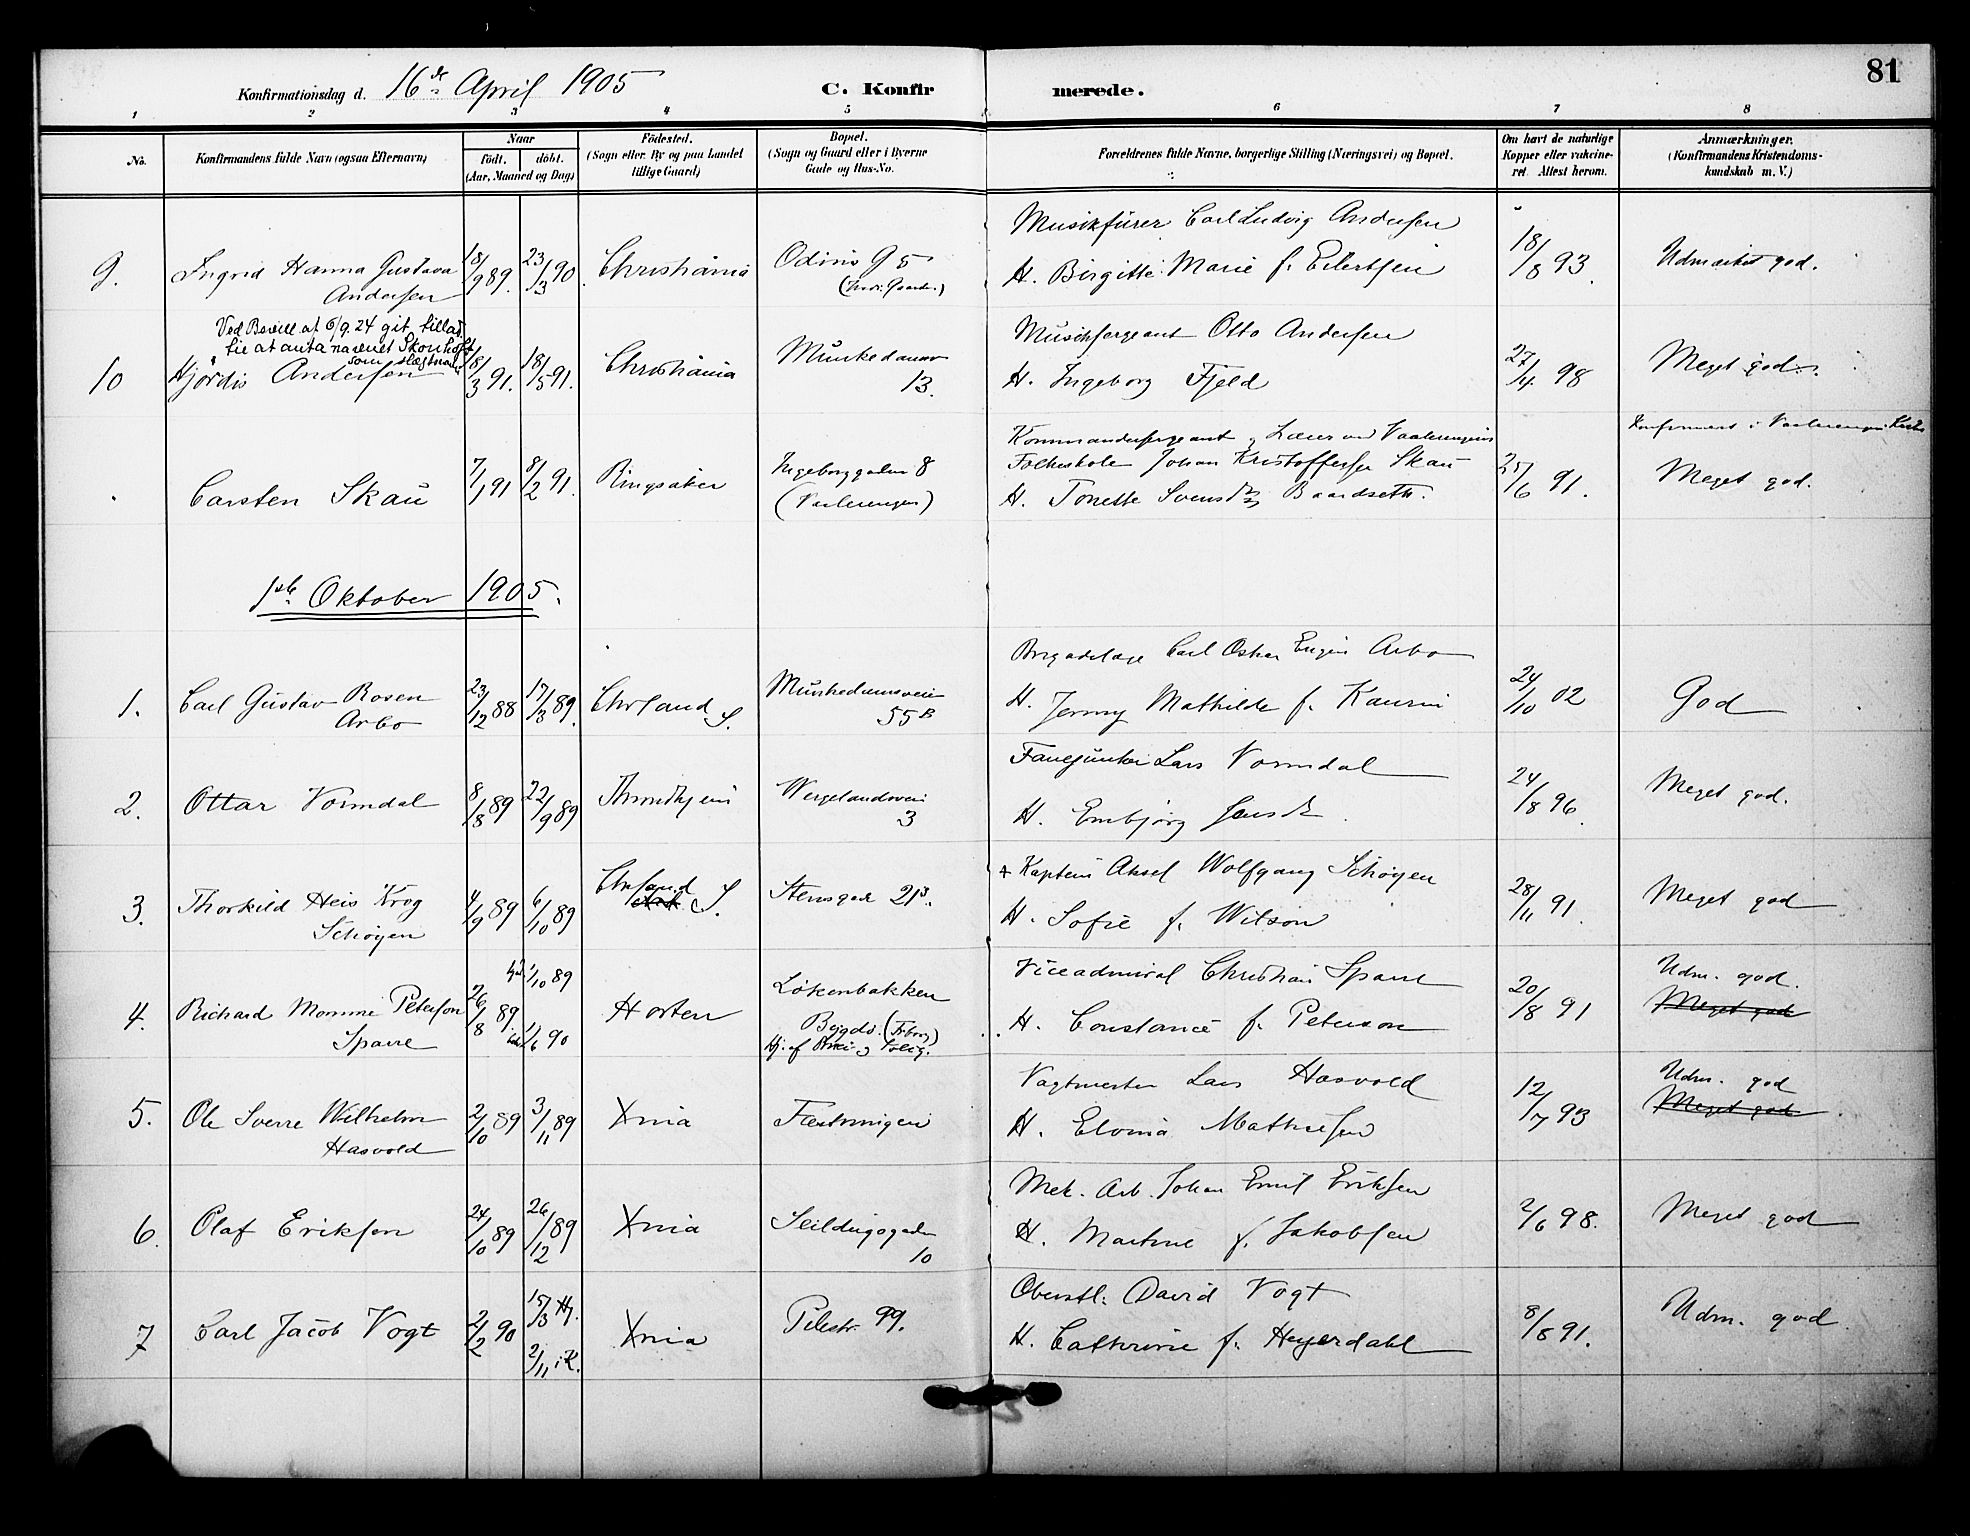 81
Konfirmationsdag d. 16de April 1905 C. Konfirmerede.
1 2 3 4 5 6 7 8
No. Konfirmandens fulde Navn (ogsaa Efternavn) Naar födt. döbt. (Aar, Maaned og Dag) Födested. (Sogn eller By og paa Landet tillige Gaard) Bopæl. (Sogn og Gaard eller i Byerne Gade og Hus-No. Forældrenes fulde Navne, borgerlige Stilling (Næringsvei) og Bopæl. Om havt de naturlige Kopper eller vakcineret. Attest herom. Anmærkninger. (Konfirmandens Kristendomskundskab m. V.)
Musikfürer Carl Ludvig Andersen
9. Ingrid Hanna Gustava 18/9 89. 23/3 90 Christiania Odins G 5 H. Birgitte Marie f. Eilertsen 18/8 93. Udmærket god.
Andersen
Ved Bevill. at 6/9. 24 git tillad.
til at anta navnet Skonhoft
som slegtnavn
Musiksergeant Otto Andersen
10 Hjørdis Andersen 18/3 91. 18/5 91. Christiania Munkedamsv 13. H. Ingeborg Fjeld 27/4 98 Meget god.
Konfirmert i Vaalerengen Kirke
Kommandersergeant og Lærer ved Vaalerengens
Folkeskole Johan Kristoffersen Skau
Carsten Skau 7/1 91 8/2 91. Ringsaker Ingeborggaden 8 (Vaalerengen) H. Tonette Svensdtr Baardseth. 25/6 91. Meget god.
1ste Oktober 1905.
Brigadelæge Carl Oskar Eugen Arbo
1. Carl Gustav Rosen 23/12 88 17/3 89. Chrsand S. Munkedamsveien 55 B H. Jenny Mathilde f. Kaurin 24/10 02 God
Arbo
Fanejunker Lars Vormdal
2. Ottar Vormdal 8/8 89 22/9 89 Throndhjem Wergelandsvein 3 H. Embjørg Jensdtr. 24/8 96. Meget god.
+ Kaptein Aksel Wolfgang Schøyen
3. Thorkild Heis Krog 4/9 89 6/10 89 Chrsand S. Stensgade 21 H. Sofie f. Wilson 28/11 91. Meget god
Schøyen
Viceadmiral Christian Sparre
4. Richard Momme Peterson 26/8 89. hjd. 1/10 89 1/6 90 Horten Løkenbakken Bygdø. H. Constance f. Peterson 20/8 91 Udm. god. Meget god
Sparre
Vagtmester Lars Hasvold
5. Ole Sverre Wilhelm 2/10 89 3/11 89 Xnia Fæstningen H. Elvina Mathiesen 12/7 93 Udm. god Meget god
Hasvold
Mek. Arb. Johan Emil Eriksen
6. Olaf Eriksen 24/10 89 26/12 89 Xnia Seildugsgaden 10 H. Martine f. Jakobsen 2/6 98. Meget god
Oberstl. David Vogt
7 Carl Jacob Vogt 2/2 90 15/3 Hj. 2/11 i K. Xnia Pilestr. 99. H. Cathrine f. Heyerdahl 8/8 91. Udm. god